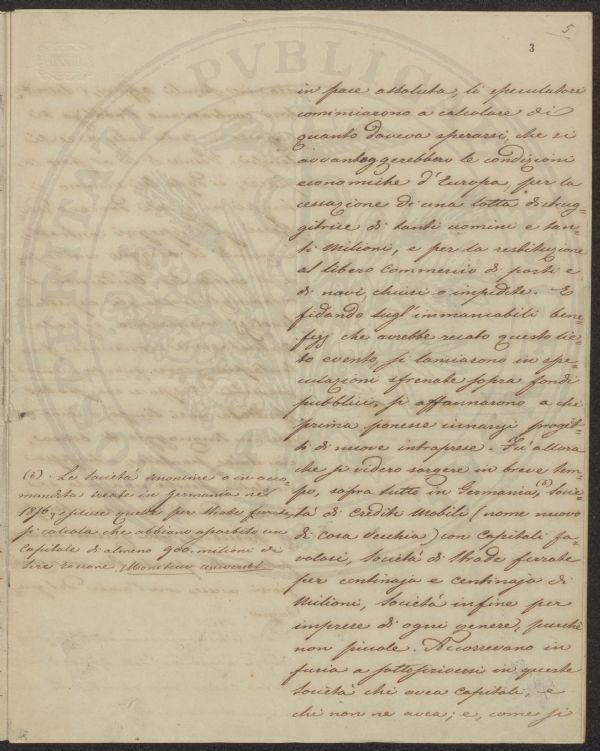 5
3
in pace assoluta, li speculatori
cominciarono a calcolare di
quanto doveva sperarsi, che si
avvantaggerebbero le condizioni
economiche d'Europa, per la
cessazione di una lotta distrug=
gitrice di tanti uomini e tan=
ti Milioni, e per la restituzione
al libero Commercio di porti e
di navi, chiusi o impedite. E
fidando sugl' immancabili bene=
fizj che avrebbe recato questo lie=
to evento, si lanciarono in spe=
culazioni sfrenate sopra fondi
pubblici, si affannarono a chi
prima ponesse innanzi progét=
ti di nuove intraprese. Fu allora
che si videro sorgere in breve tem=
po, sopra tutto in Germania, (b) Socie=
tà di Crediti Mobili (nome nuovo
di cosa vecchia) con Capitali fa=
volosi, Società di Strade ferrate
per centinaja e centinaja di
Milioni, Società infine per
imprese di ogni genere, purchè
non piccole. Accorrevano in
furia a sottoscriversi in queste
Società chi avea Capitali, e
chi non ne avea; e, come si
(b) Le Società Anonime o in acco=
mandita create in Germania nel
1856, escluse quelle per Strade ferrate,
si calcola che abbiano assorbito un
Capitale di almeno 900. milioni di
lire Moniteur universel